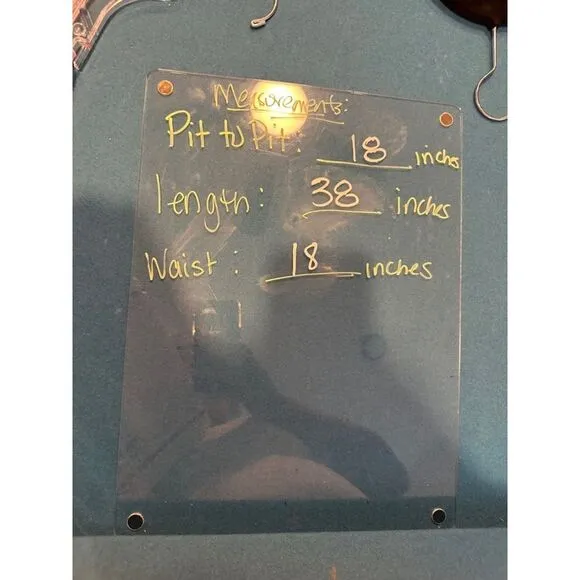 Measurements:
Pit to Pit: 18 inches
length: 38 inches
Waist: 18 inches